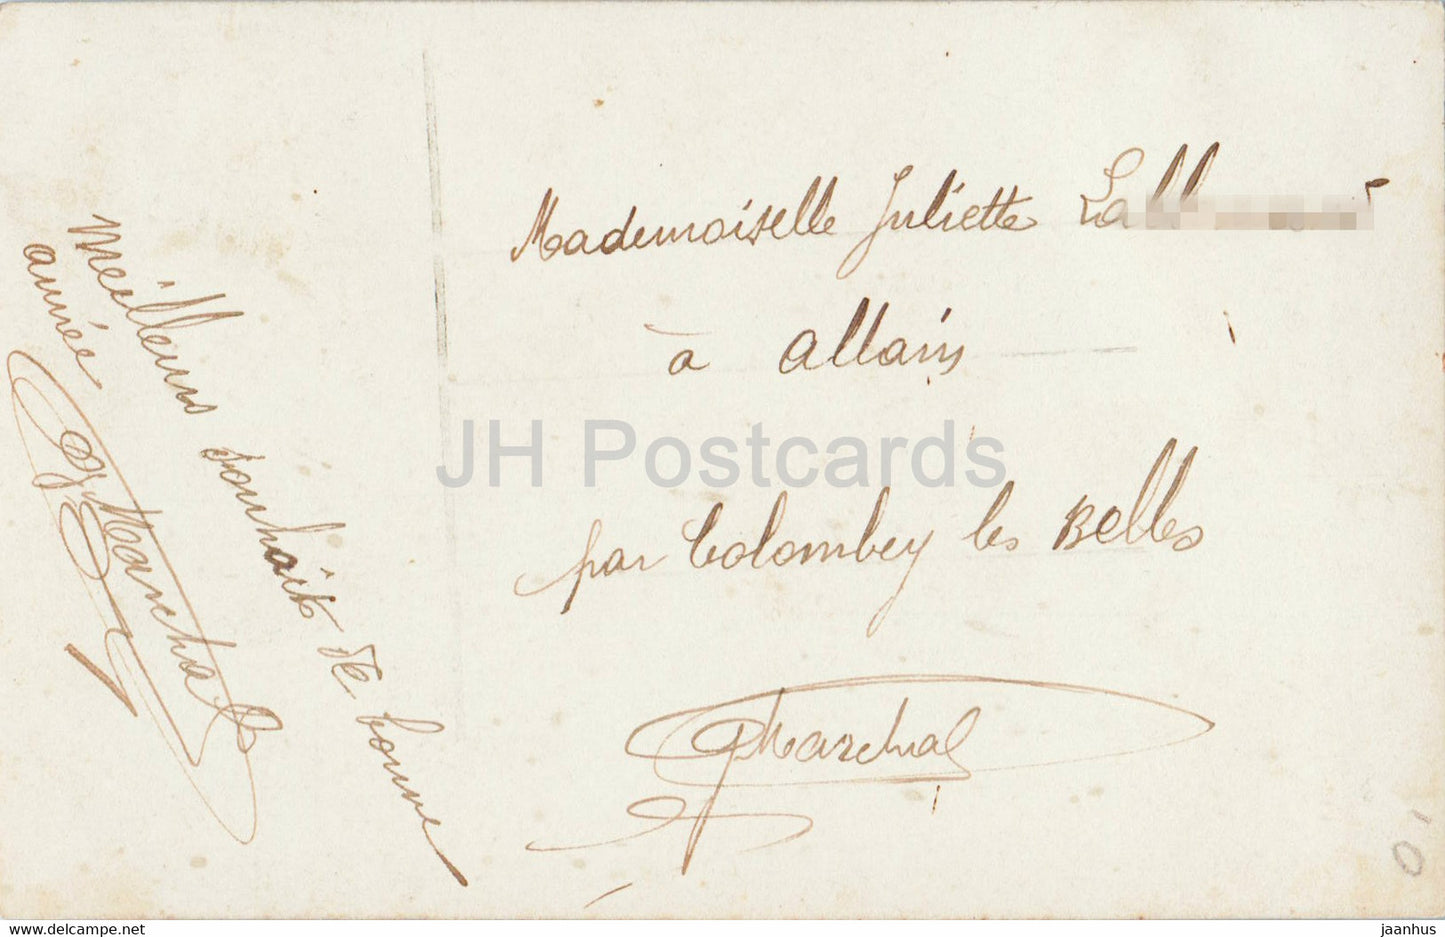 Meilleurs souhaits de bonne
année
Marchal
Mademoiselle Juliette
à allain
par Colombey les Belles
Marchal
JH Postcards
www.delcampe.net
jaanhus